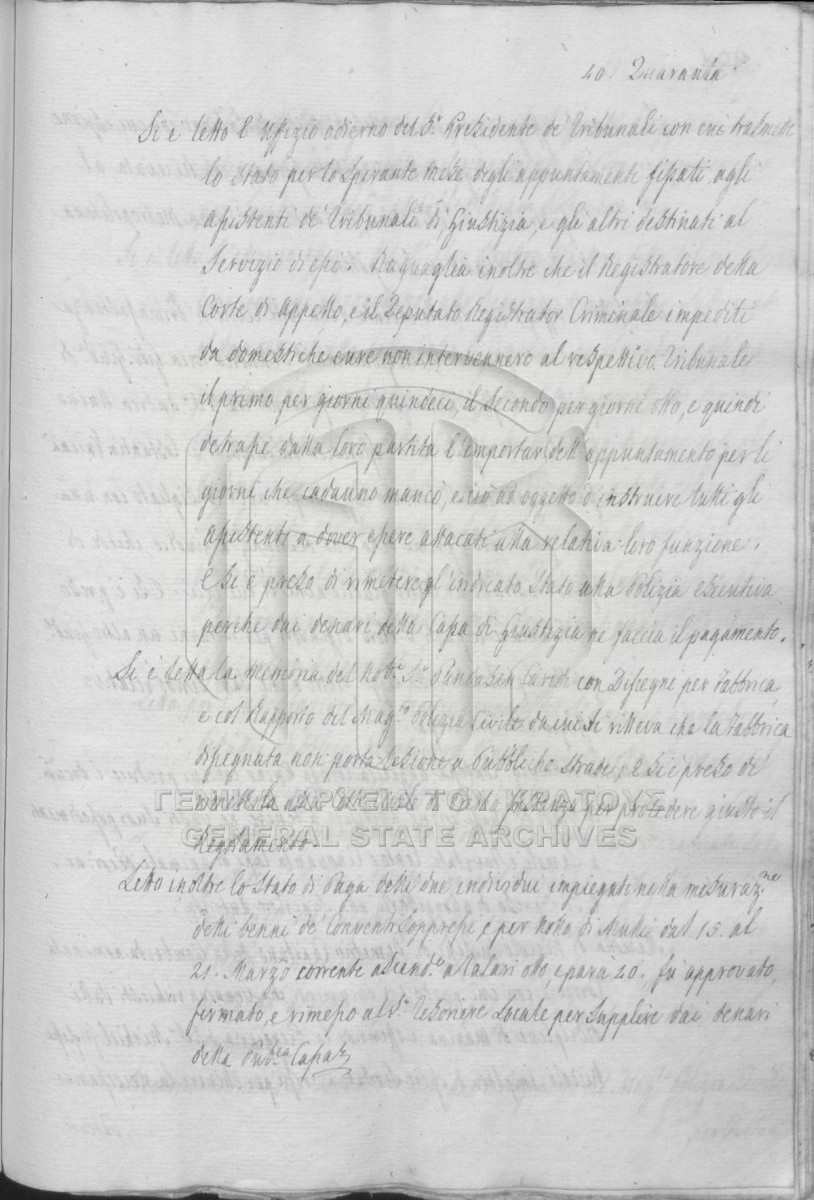 40. Quaranta
Si è letto l'Uffizio odierno del S.r Presidente de' Tribunali con cui trasmette
lo Stato per lo spirante Mese degli appuntamenti fissati agli
assistenti de' Tribunali di Giustizia, e gli altri destinati al
Servizio di essi. Raguaglia inoltre che il Registratore della
Corte di Appello, e il Deputato Registrator Criminale impediti
da domestiche cure non intervennero al respettivo Tribunale
il primo per giorni quindeci, il Secondo per giorni otto, e quindi
detrasse dalla loro partita l'importar dell'appuntamento per li
giorni che cadauno mancò, e ciò ad oggetto d'instruire tutti gli
assistenti a dover essere attacati alla relativa loro funzione.
E si è preso di rimettere l'indicato Stato alla Polizia esecutiva
perche dai denari della Cassa di Giustizia ne faccia il pagamento.
Si è letta la memoria del Nob.e S.r Caridi con Dissegno per Fabbrica,
e col Rapporto del Mag.to Polizia Civile da cui si rilleva che la Fabbrica
dissegnata non porta lesione a Pubbliche Strade; E si è preso di
rimetterla alla di Prima per procedere giusto il
Regolamento.
Letto inoltre lo Stato di Paga delli due individui impiegati nella mesuraz.ne
delli benni de' Conventi soppressi e per Notta di Mulli dal 15. al
21. Marzo corrente ascend.e a talari otto, e parà 20. fu approvato,
firmato, e rimesso al S.r Tesoriere Locale per supplire dai denari
della Pub.ca Cassa
ΓΕΝΙΚΑ ΑΡΧΕΙΑ ΤΟΥ ΚΡΑΤΟΥΣ
GENERAL STATE ARCHIVES